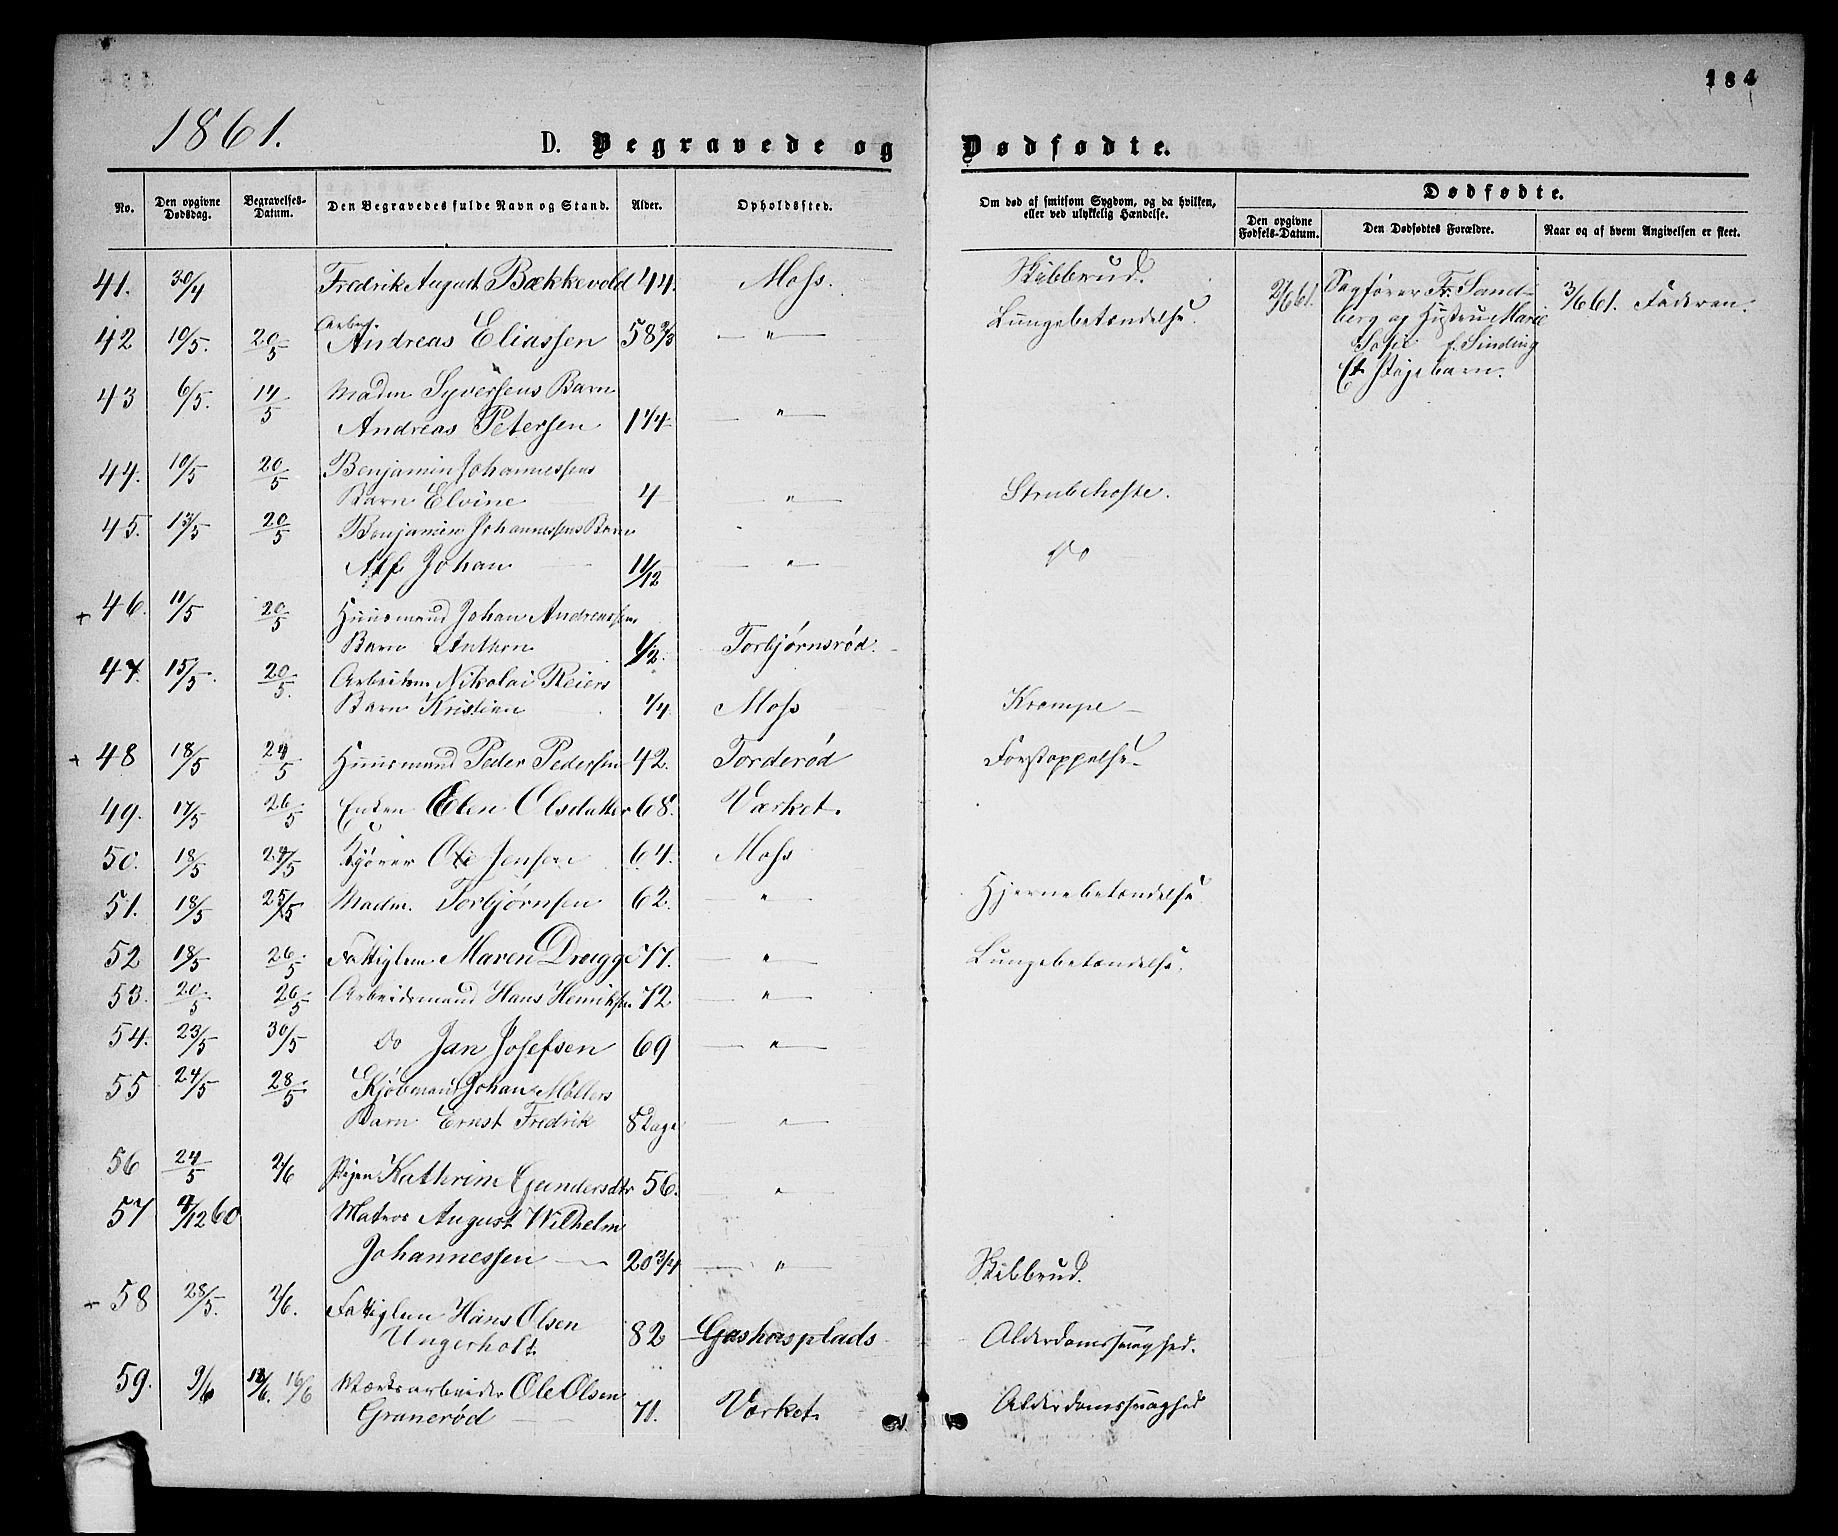 184
1861.
D. Begravede og Dødfødte.
No.
Den opgivne Dødsdag.
Begravelses-Datum.
Den Begravedes fulde Navn og Stand.
Alder.
Opholdssted.
Om død af smitsom Sygdom, og da hvilken, eller ved ulykkelig Hændelse.
Dødfødte.
Den opgivne Fødsels-Datum.
Den Dødfødtes Forældre.
Naar og af hvem Angivelsen er skeet.
41. 30/4 Fredrik August Bækkevold 44. Moss. Skibbrud.
2/6 61. Sagfører Fr. Sand-
berg og Hustru Marie
Sofie f. Sinding
Et Pigebarn.
3/6 61. Faderen.
42 10/5. 20/5 Arbm
Andreas Eliassen 58 2/3 — " — Lungebetændelse.
43 6/5. 14/5 Madm Syversens Barn
Andreas Petersen 1 1/4 — " —
44. 10/5 20/5 Benjamin Johannessens
Barn Elvine 4 — " — Strubehoste.
45. 13/5 20/5 Benjamin Johannessens Barn
Alf Johan 11/12 — " — Do
+ 46. 11/5 20/5 Huusmand Johan Andreassens
Barn Anthon 1/2. Torbjørnsrød.
47 15/5. 20/5. Arbeidsm Nikolai Reiers
Barn Kristian 1/4. Moss Krampe
+ 48 18/5 24/5 Huusmand Peder Pedersen 42. Torderød Forstoppelse
49. 17/5 26/5 Enken Elen Olsdatter 68. Værket.
50. 18/5 24/5 Kjører Ole Jensen 64. Moss
51. 18/5 25/5 Madm. Torbjørnsen 62. — " — Hjernebetændelse
52 18/5 26/5 Fattiglem Maren Drougge 77. — " — Lungebetændelse.
53. 20/5 26/5 Arbeidsmand Hans Henriksen 72 — " —
54. 23/5 30/5 Do Jan Josefsen 69 — " —
55 24/5 28/5 Kjøbmand Johan Møllers
Barn Ernst Fredrik 8 Dage "
56 24/5 2/6 Pigen Kathrine Gundersdtr 56. — " —
57 9/12 60 Matros August Wilhelm
Johannessen 20 3/4 — " — Skibbrud.
+ 58 28/5. 2/6. Fattiglem Hans Olsen
Ungerholt 82 Gashusplads Alderdomssvaghed.
59. 9/6 12/6. 16/6 Værksarbeider Ole Olsen
Granerød 71. Værket. Alderdomssvaghed